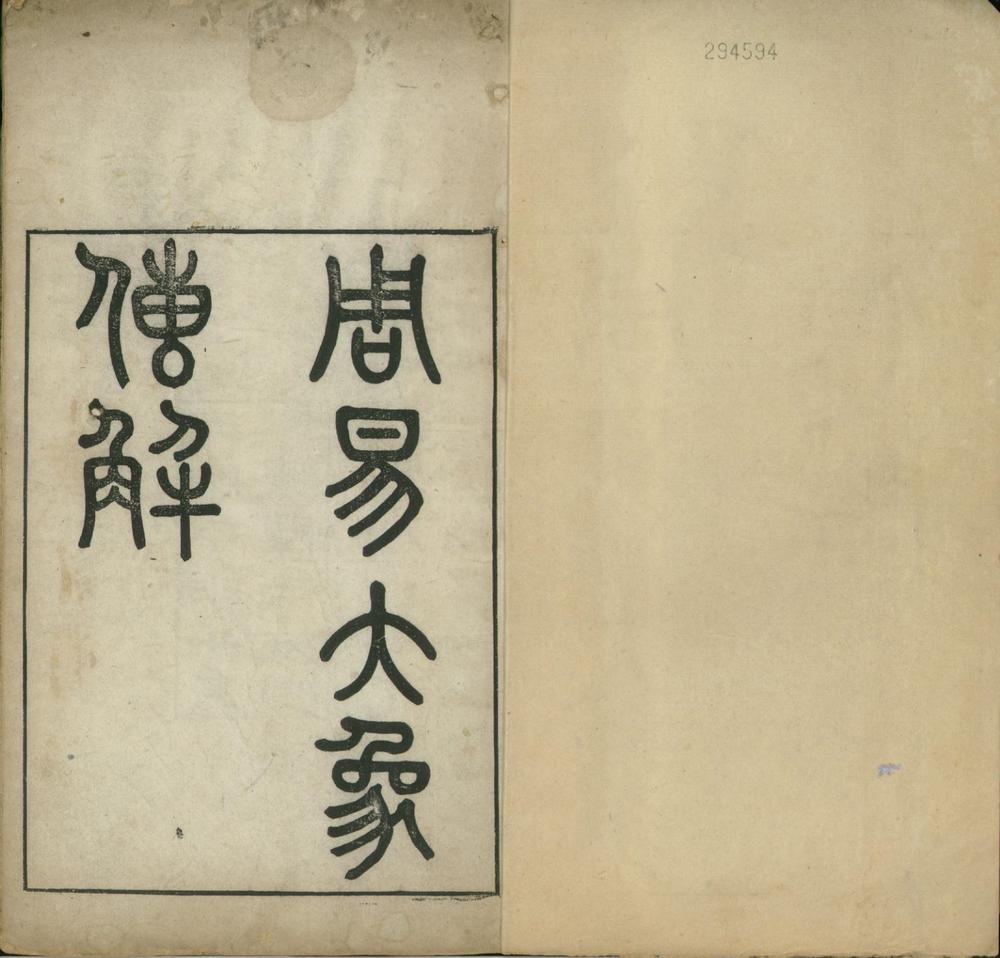 294594
周易大象
傳解